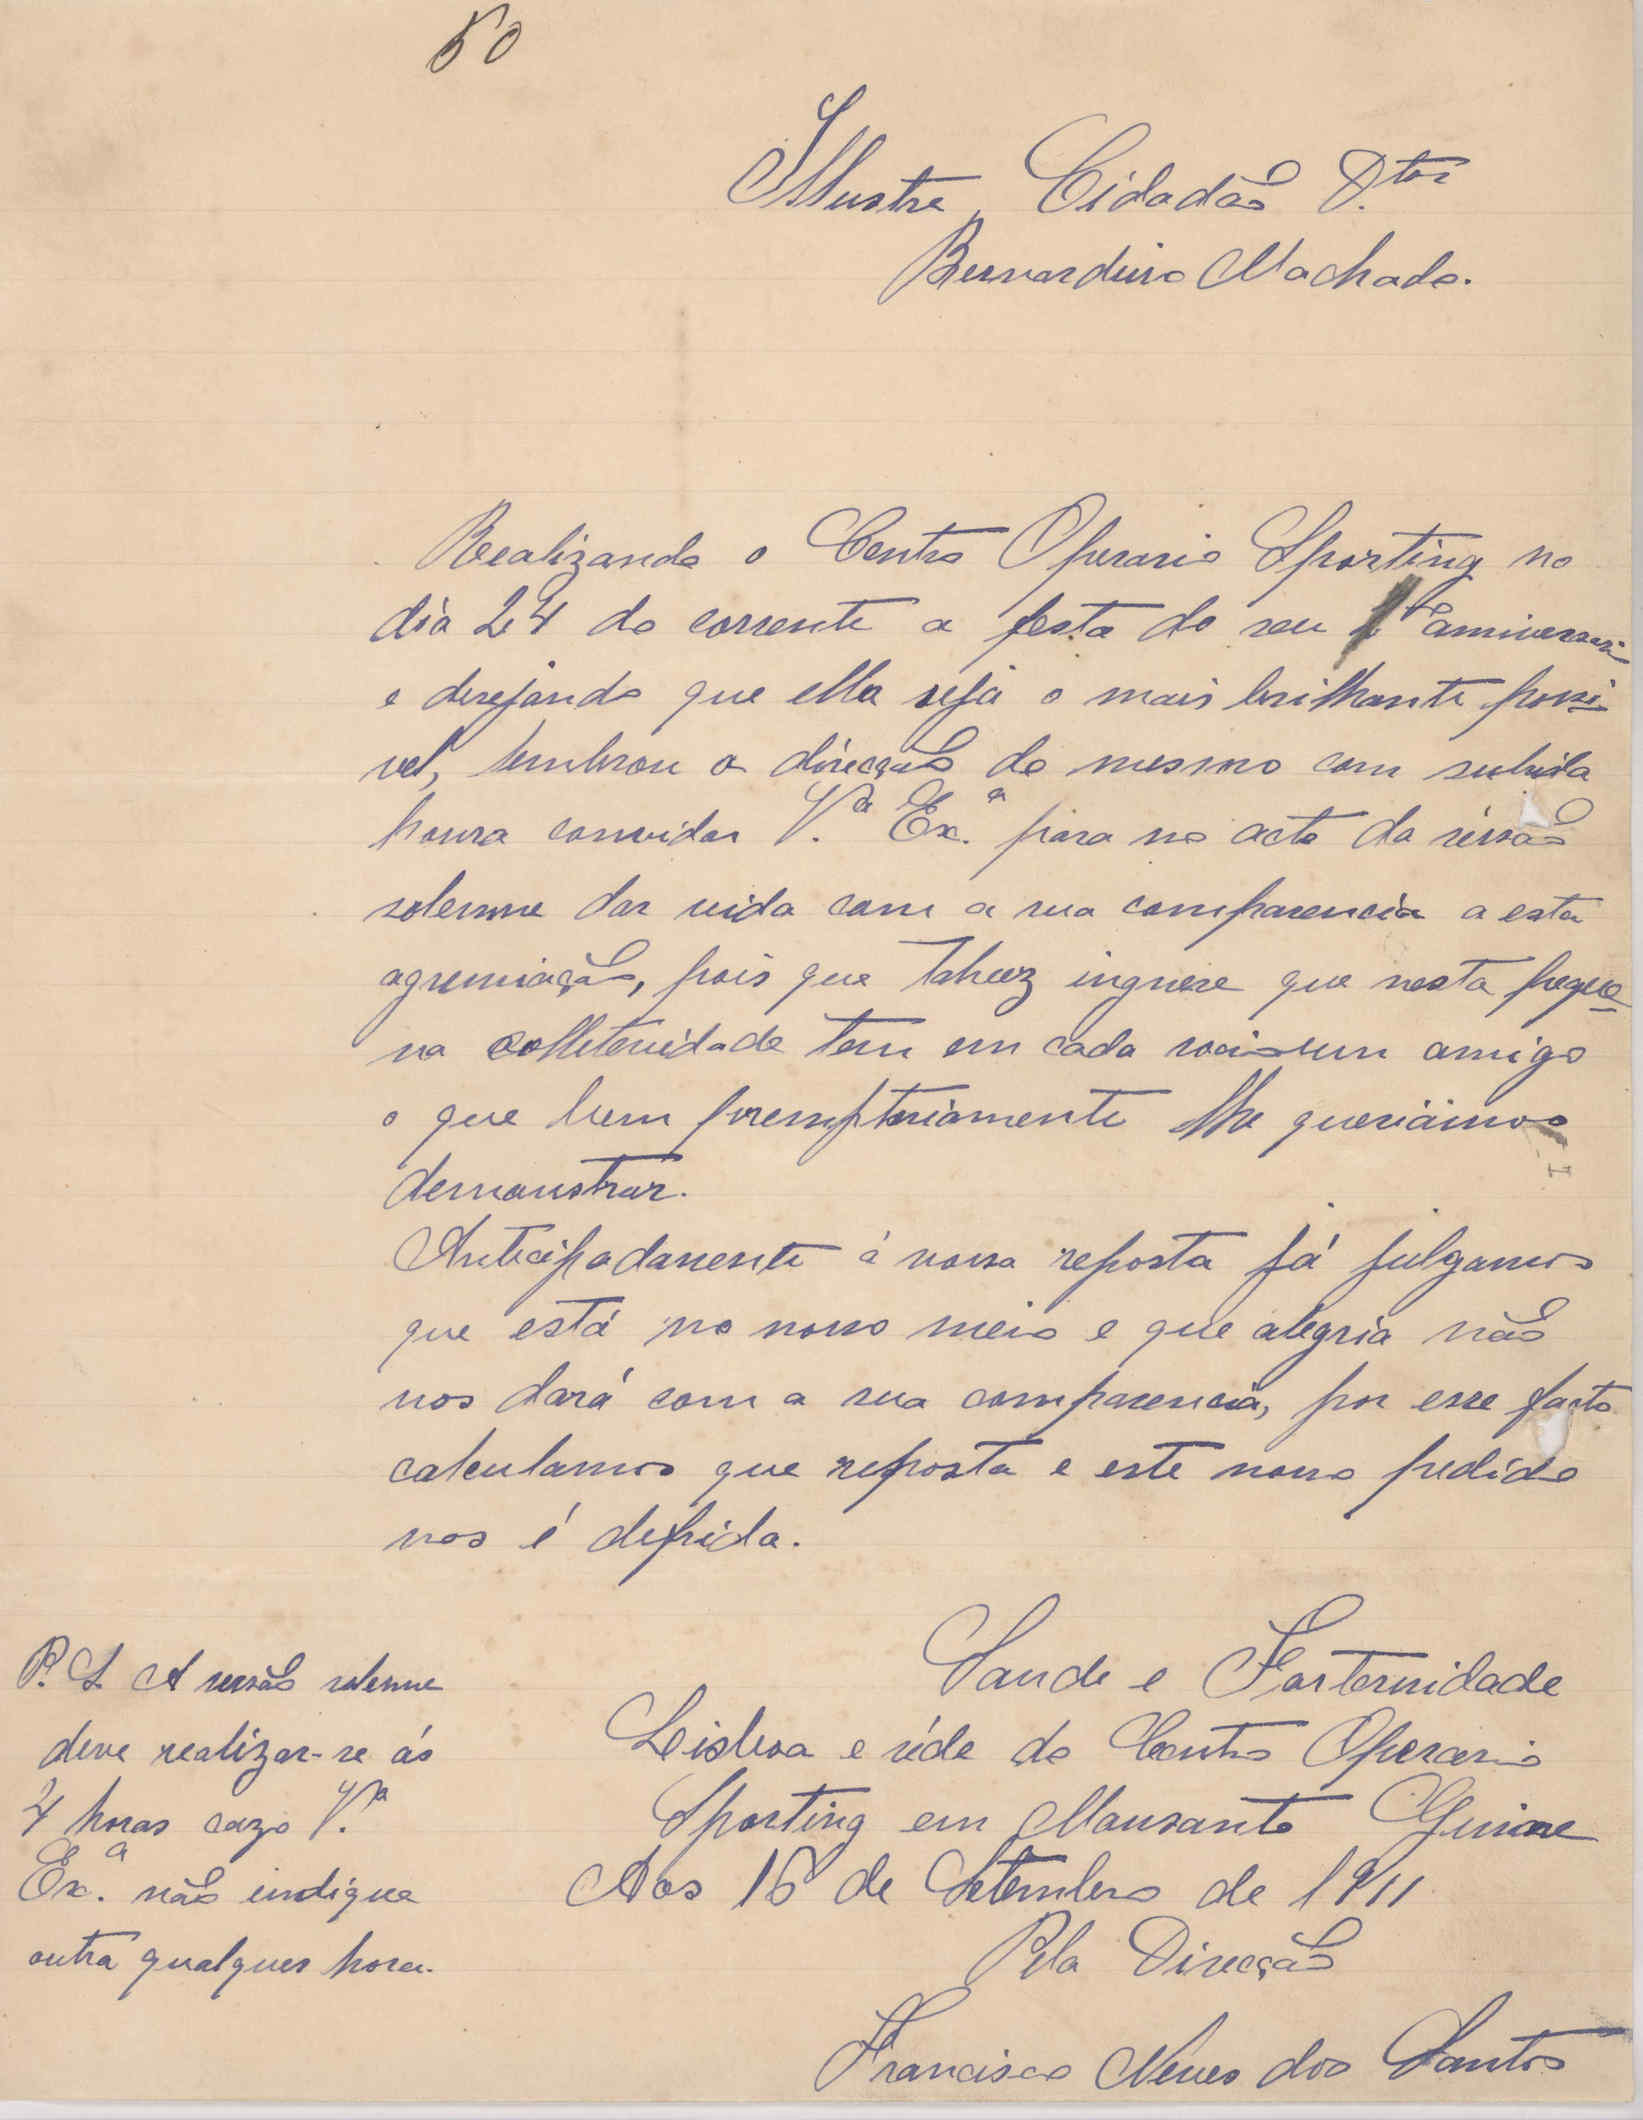 50
Illustre Cidadão D.tor
Bernardino Machado.
Realizando o Centro Operario Sporting no
dia 24 do corrente a festa do seu 1º anniversari
e desejando que ella seja o mais brilhante possi-
vel, lembrou a direcção do mesmo com subida
honra convidar V.ª Ex.ª para no acto da séssão
solemne dar vida com a sua comparencia a esta
agremiação, pois que talvez ingnore que nesta peque-
na colletevidade tem em cada socio um amigo
o que bem premptoriamente lhe queriâmos
demonstrar.
Antecipadamente á vossa reposta já julgamos
que está no nosso meio e que alegria não
nos dará com a sua comparencia, por esse facto
calculamos que reposta e este nosso pedido
nos é defrida.
Saude e Farternidade
Lisboa e séde do Centro Operario
Sporting em Monsanto
Aos 16 de Setembro de 1911
Pela Direcção
Francisco Neves dos Santos
P. S. A sessão solemne
deve realizar-se ás
4 horas cazo V.ª
Ex.ª não indique
outra qualquer hora.